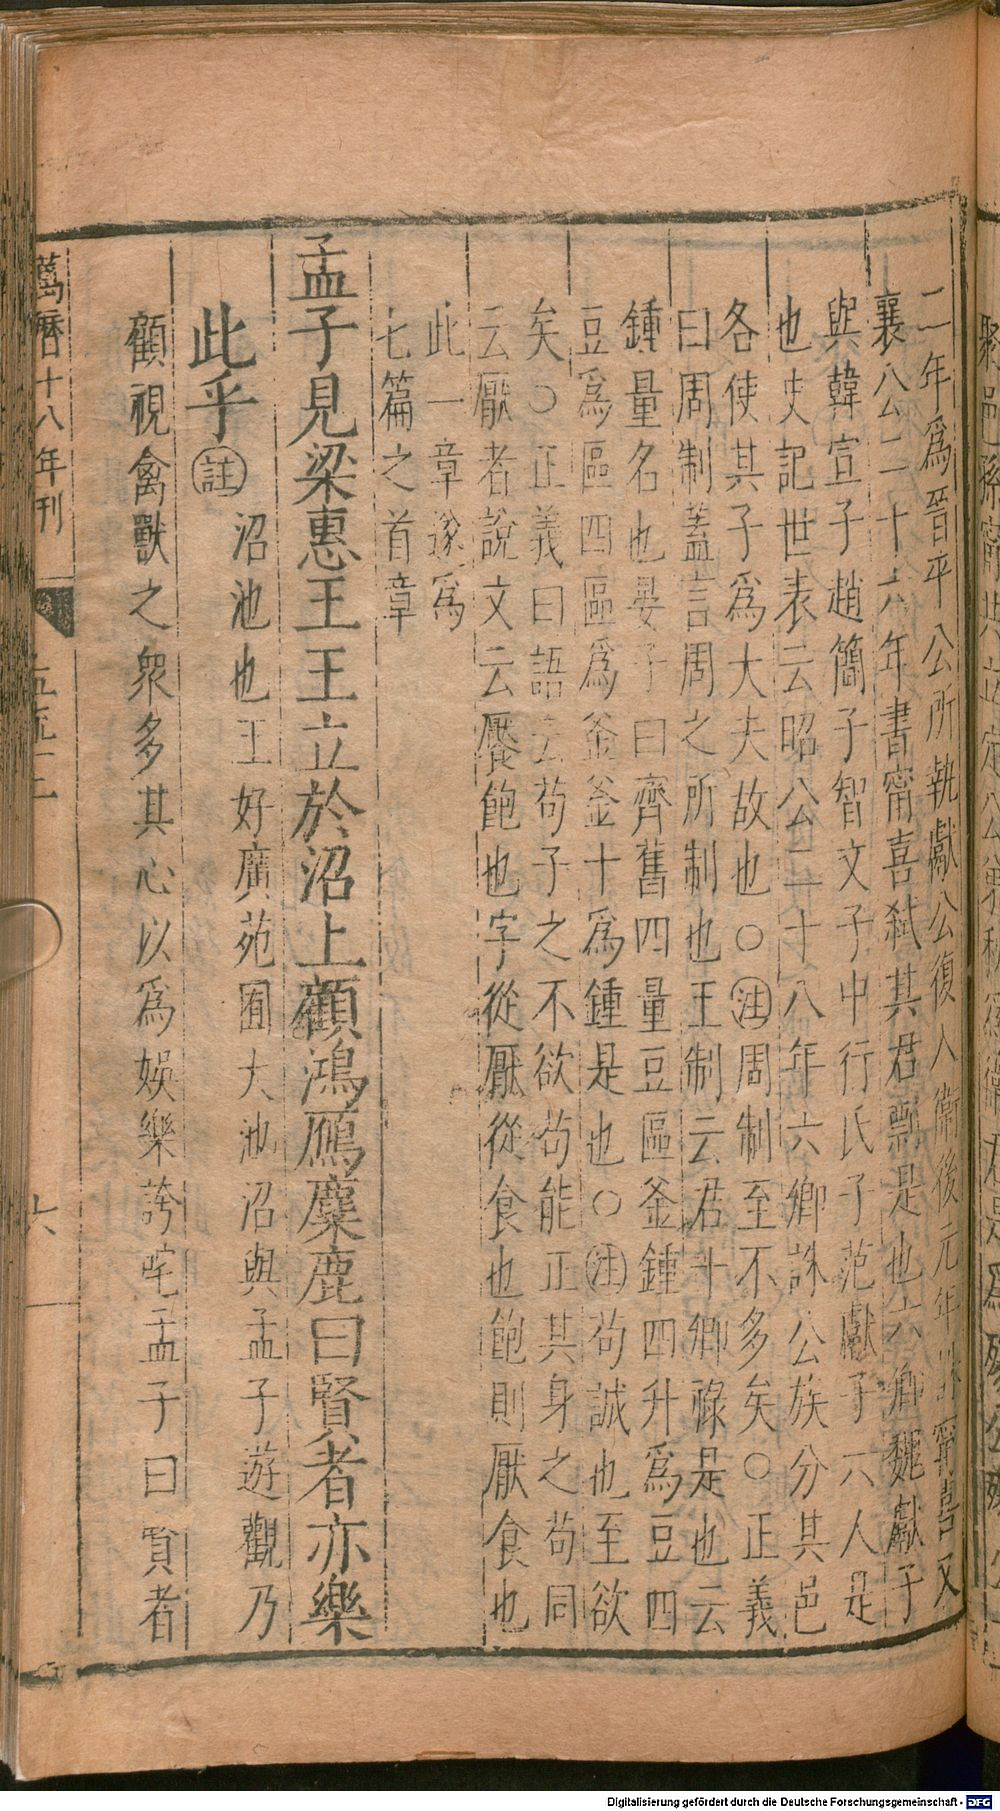 二年爲晉平公所執獻公復入衛後元年誅甯喜又
襄公二十六年書甯喜弒其君剽是也六卿魏獻子
與韓宣子趙簡子智文子中行氏子范獻子六人是
也史記世表云昭公二十八年六卿誅公族分其邑
各使其子爲大夫故也○㊟周制至不多矣○正義
曰周制蓋言周之所制也王制云君十卿祿是也云
鍾量名也晏子曰齊舊四量豆區釜鍾四升爲豆四
豆爲區四區爲釜釜十爲鍾是也○㊟苟誠也至欲
矣○正義曰語云苟子之不欲苟能正其身之苟同
云厭者說文云饜飽也字從厭從食也飽則厭食也
此一章遂爲
七篇之首章
孟子見梁惠王王立於沼上顧鴻鴈麋鹿曰賢者亦樂
此乎㊟沼池也王好廣苑囿大池沼與孟子遊觀乃
顧視禽獸之衆多其心以爲娛樂誇咤孟子曰賢者
萬曆十八年刊
六
Digitalisierung gefördert durch die Deutsche Forschungsgemeinschaft - DFG